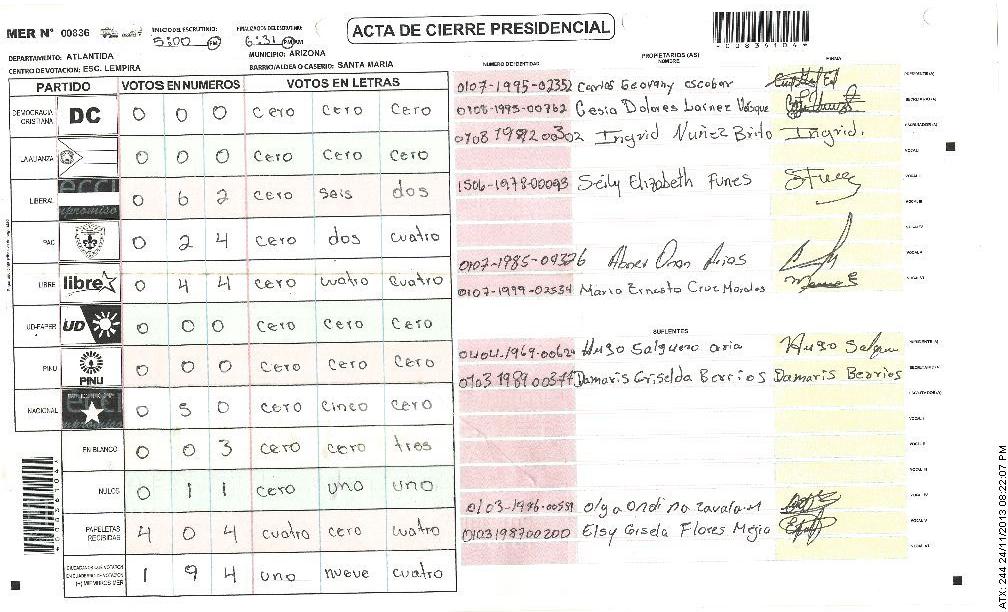 ACTA DE CIERRE PRESIDENCIAL
MER N° 00836
INICIO DEL ESCRUTINIO: 5:00 PM
FINALIZACION DEL ESCRUTINIO: 6:31 PM
DEPARTAMENTO: ATLANTIDA MUNICIPIO: ARIZONA
CENTRO DE VOTACION: ESC. LEMPIRA BARRIO/ALDEA O CASERIO: SANTA MARIA
PARTIDO VOTOS EN NUMEROS VOTOS EN LETRAS
DEMOCRACIA CRISTIANA DC 0 0 0 cero cero cero
LA ALIANZA 0 0 0 cero cero cero
LIBERAL 0 6 2 cero seis dos
PAC 0 2 4 cero dos cuatro
LIBRE libre 0 4 4 cero cuatro cuatro
UD-FAPER UD 0 0 0 cero cero cero
PINU PINU 0 0 0 cero cero cero
NACIONAL 0 5 0 cero cinco cero
EN BLANCO 0 0 3 cero cero tres
NULOS 0 1 1 cero uno uno
PAPELETAS RECIBIDAS 4 0 4 cuatro cero cuatro
1 9 4 uno nueve cuatro
PROPIETARIOS (AS)
NUMERO DE IDENTIDAD NOMBRE FIRMA
0107-1995-02352 Carlos Geovany escobar
0108-1995-00762 Cesia Dolores
0708 1982 00302 Ingrid Nuñez Brito Ingrid.
1506-1978-00093 Seily Elizabeth Funes
0107-1985-09326
0107-1999-02534 Mario Ernesto Cruz Morales
SUPLENTES
0404-1969-00624 Hugo Salguero
0103 1989 00377 Damaris Griselda Berrios Damaris Berrios
0103-1986-00559 Olga Ondina Zavala M
0103198700200 Elsy Gisela Flores Mejia
ATX: 244 24/11/2013 08:22:07 PM